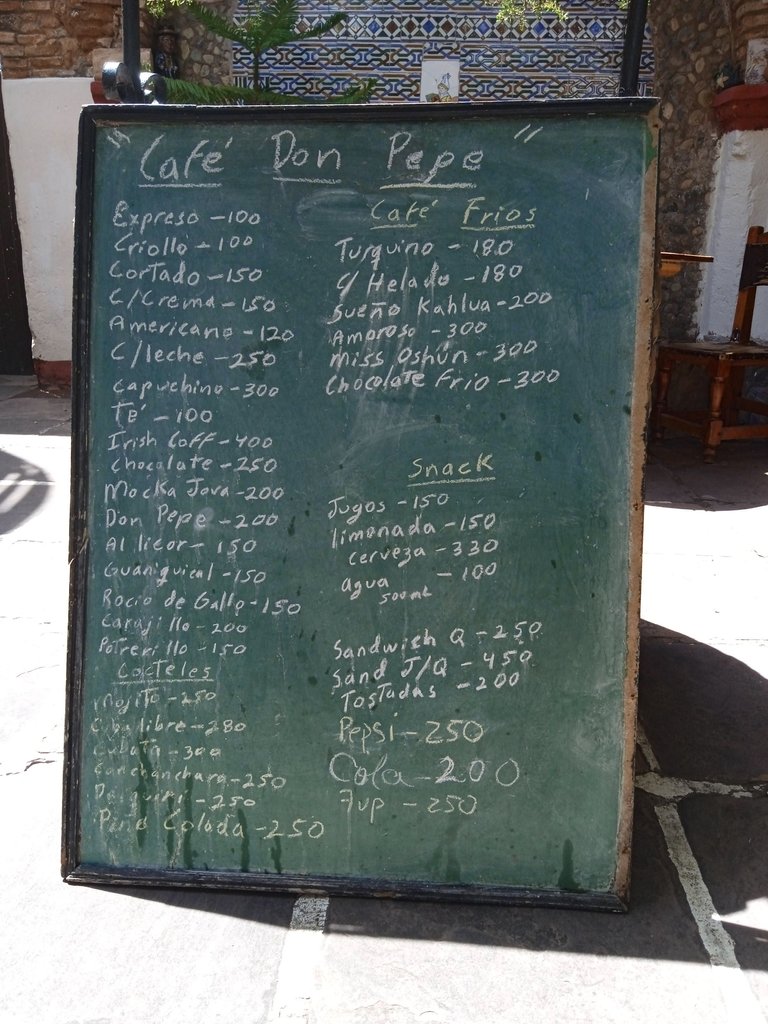 " Café Don Pepe "
Expreso - 100
Criollo - 100
Cortado - 150
C/Crema - 150
Americano - 120
C/leche - 250
Capuchino - 300
Té - 100
Irish Coff - 400
Chocolate - 250
Mocka Java - 200
Don Pepe - 200
Al licor - 150
Guaniquical - 150
Rocio de Gallo - 150
Carajillo - 200
Potrerillo - 150
Cocteles
Mojito - 250
Cubalibre - 280
Cubata - 300
Canchanchara - 250
Daiquiri - 250
Piña Colada - 250
Café Frios
Turquino - 180
C/ Helado - 180
Sueño Kahlua - 200
Amoroso - 300
Miss Oshún - 300
Chocolate Frio - 300
Snack
Jugos - 150
limonada - 150
cerveza - 330
agua - 100
500ml
Sandwich Q - 250
Sand J/Q - 450
Tostadas - 200
Pepsi - 250
Cola - 200
7up - 250